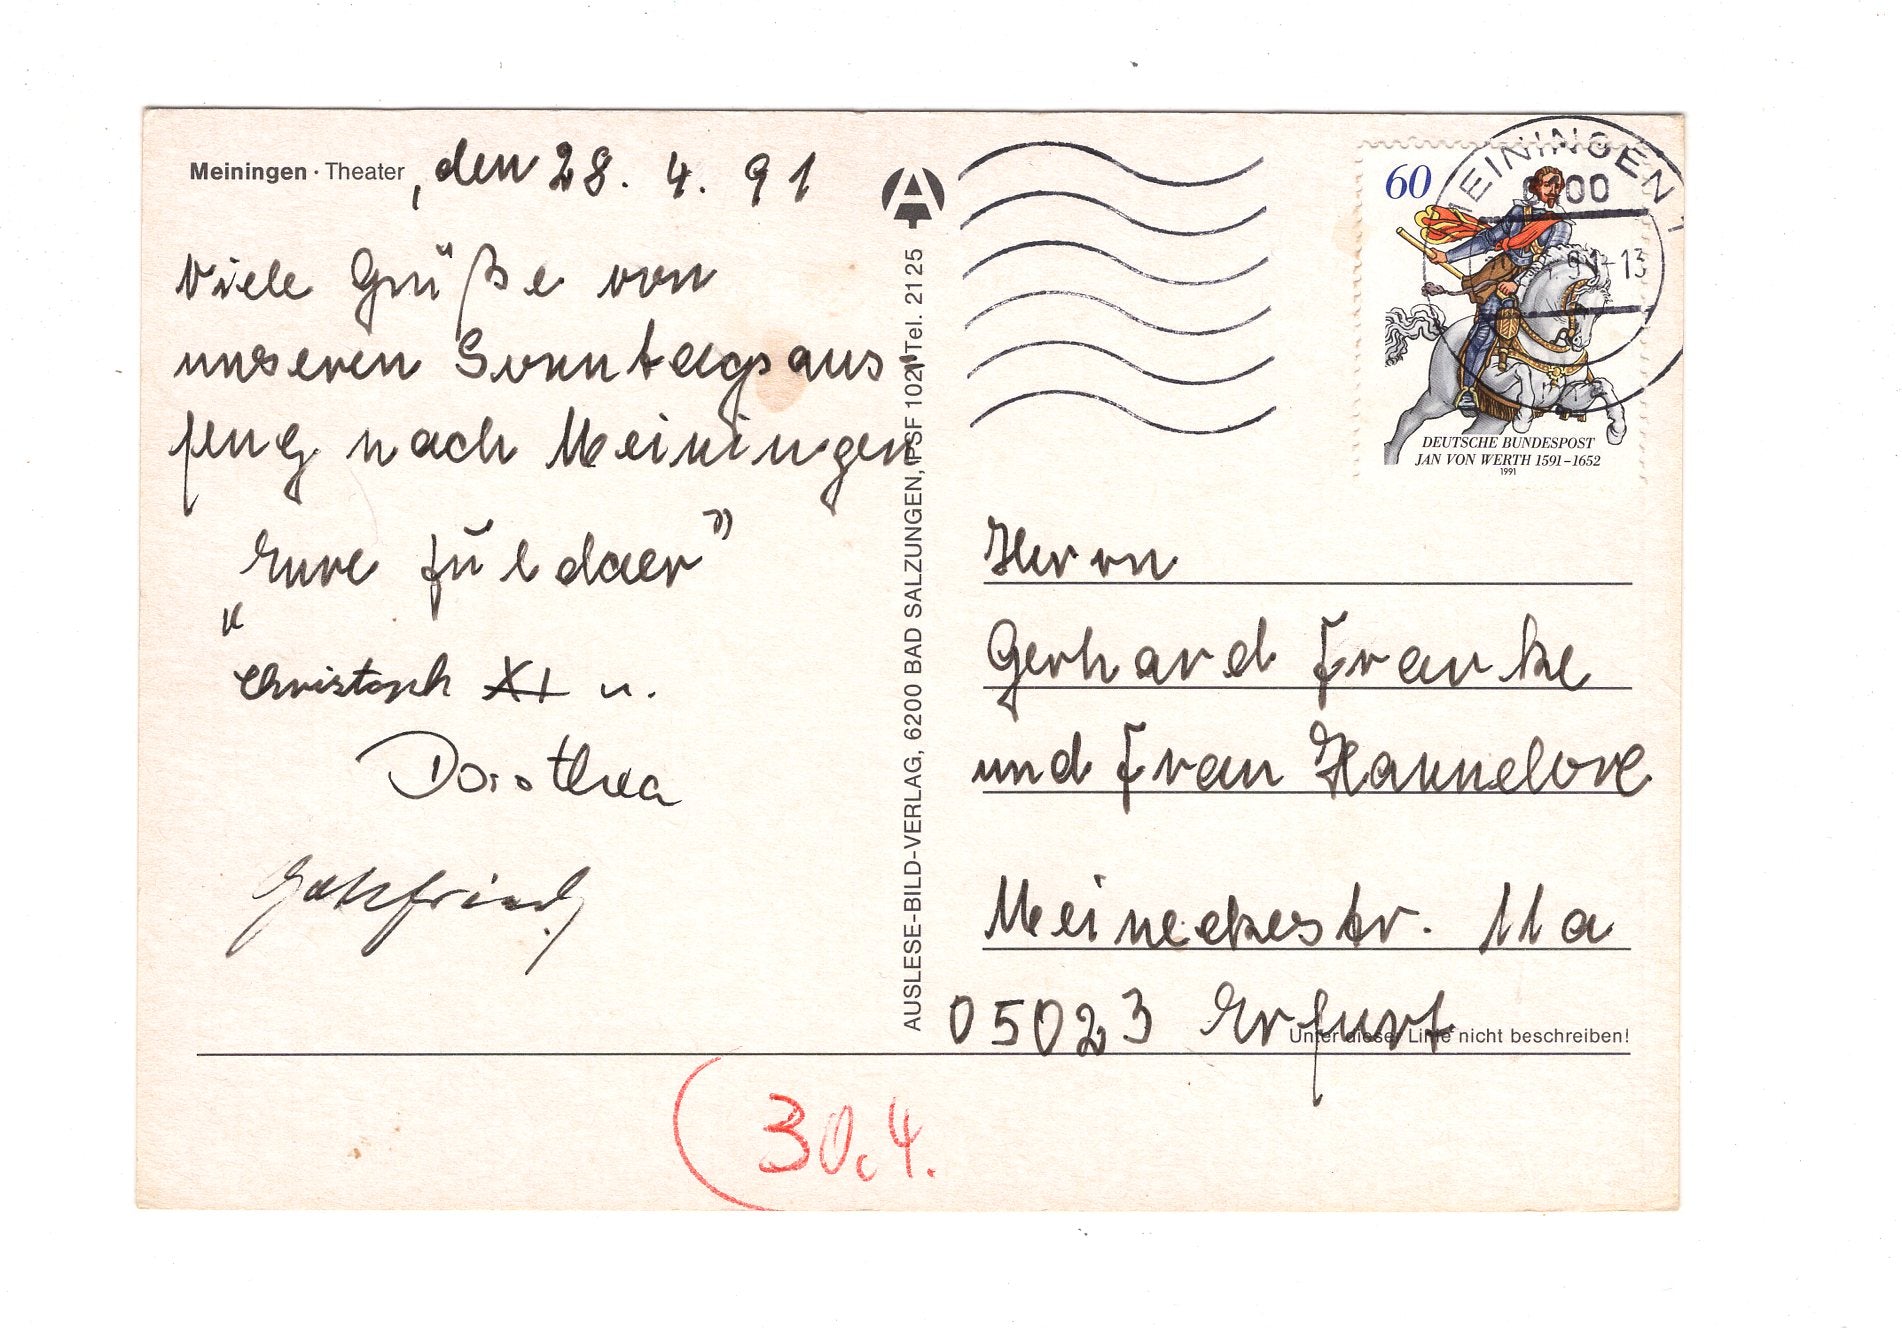 Meiningen · Theater, den 28. 4. 91
Viele Grüße von
unseren Sonntagsaus-
flug nach Meiningen
Eure Fuldaer"
"
Christoph XI u.
Dorothea
Gottfried
AUSLESE-BILD-VERLAG, 6200 BAD SALZUNGEN, PSF 102, Tel. 21 25
MEININGEN 1
91-13
60
DEUTSCHE BUNDESPOST
JAN VON WERTH 1591–1652
1991
Herrn
Gerhard Franke
und Frau Hannelore
Meineckestr. 11a
05023 Erfurt
Unter dieser Linie nicht beschreiben!
30.4.